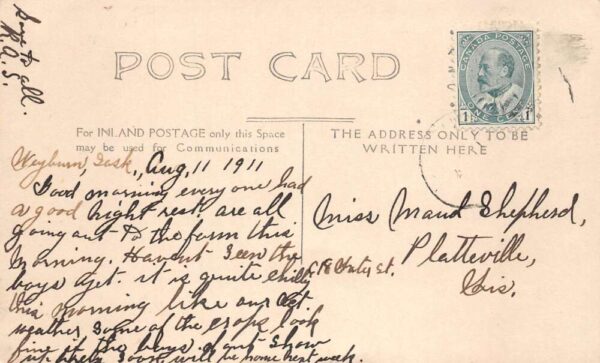 Love to all.
R.A.S.
POST CARD
CANADA POSTAGE
1 1
ONE CENT
For INLAND POSTAGE only this Space
may be used for Communications
THE ADDRESS ONLY TO BE
WRITTEN HERE
Weyburn, Sask., Aug, 11 1911
Good morning every one had
a good night rest. are all
going out to the farm this
morning. Havent seen the
boys yet. it is quite chilly
this morning like our Oct
weather Some of the crops look
fine if the boys dont show
up soon will be home next week.
Miss Maud Shepherd,
Platteville,
Wis.